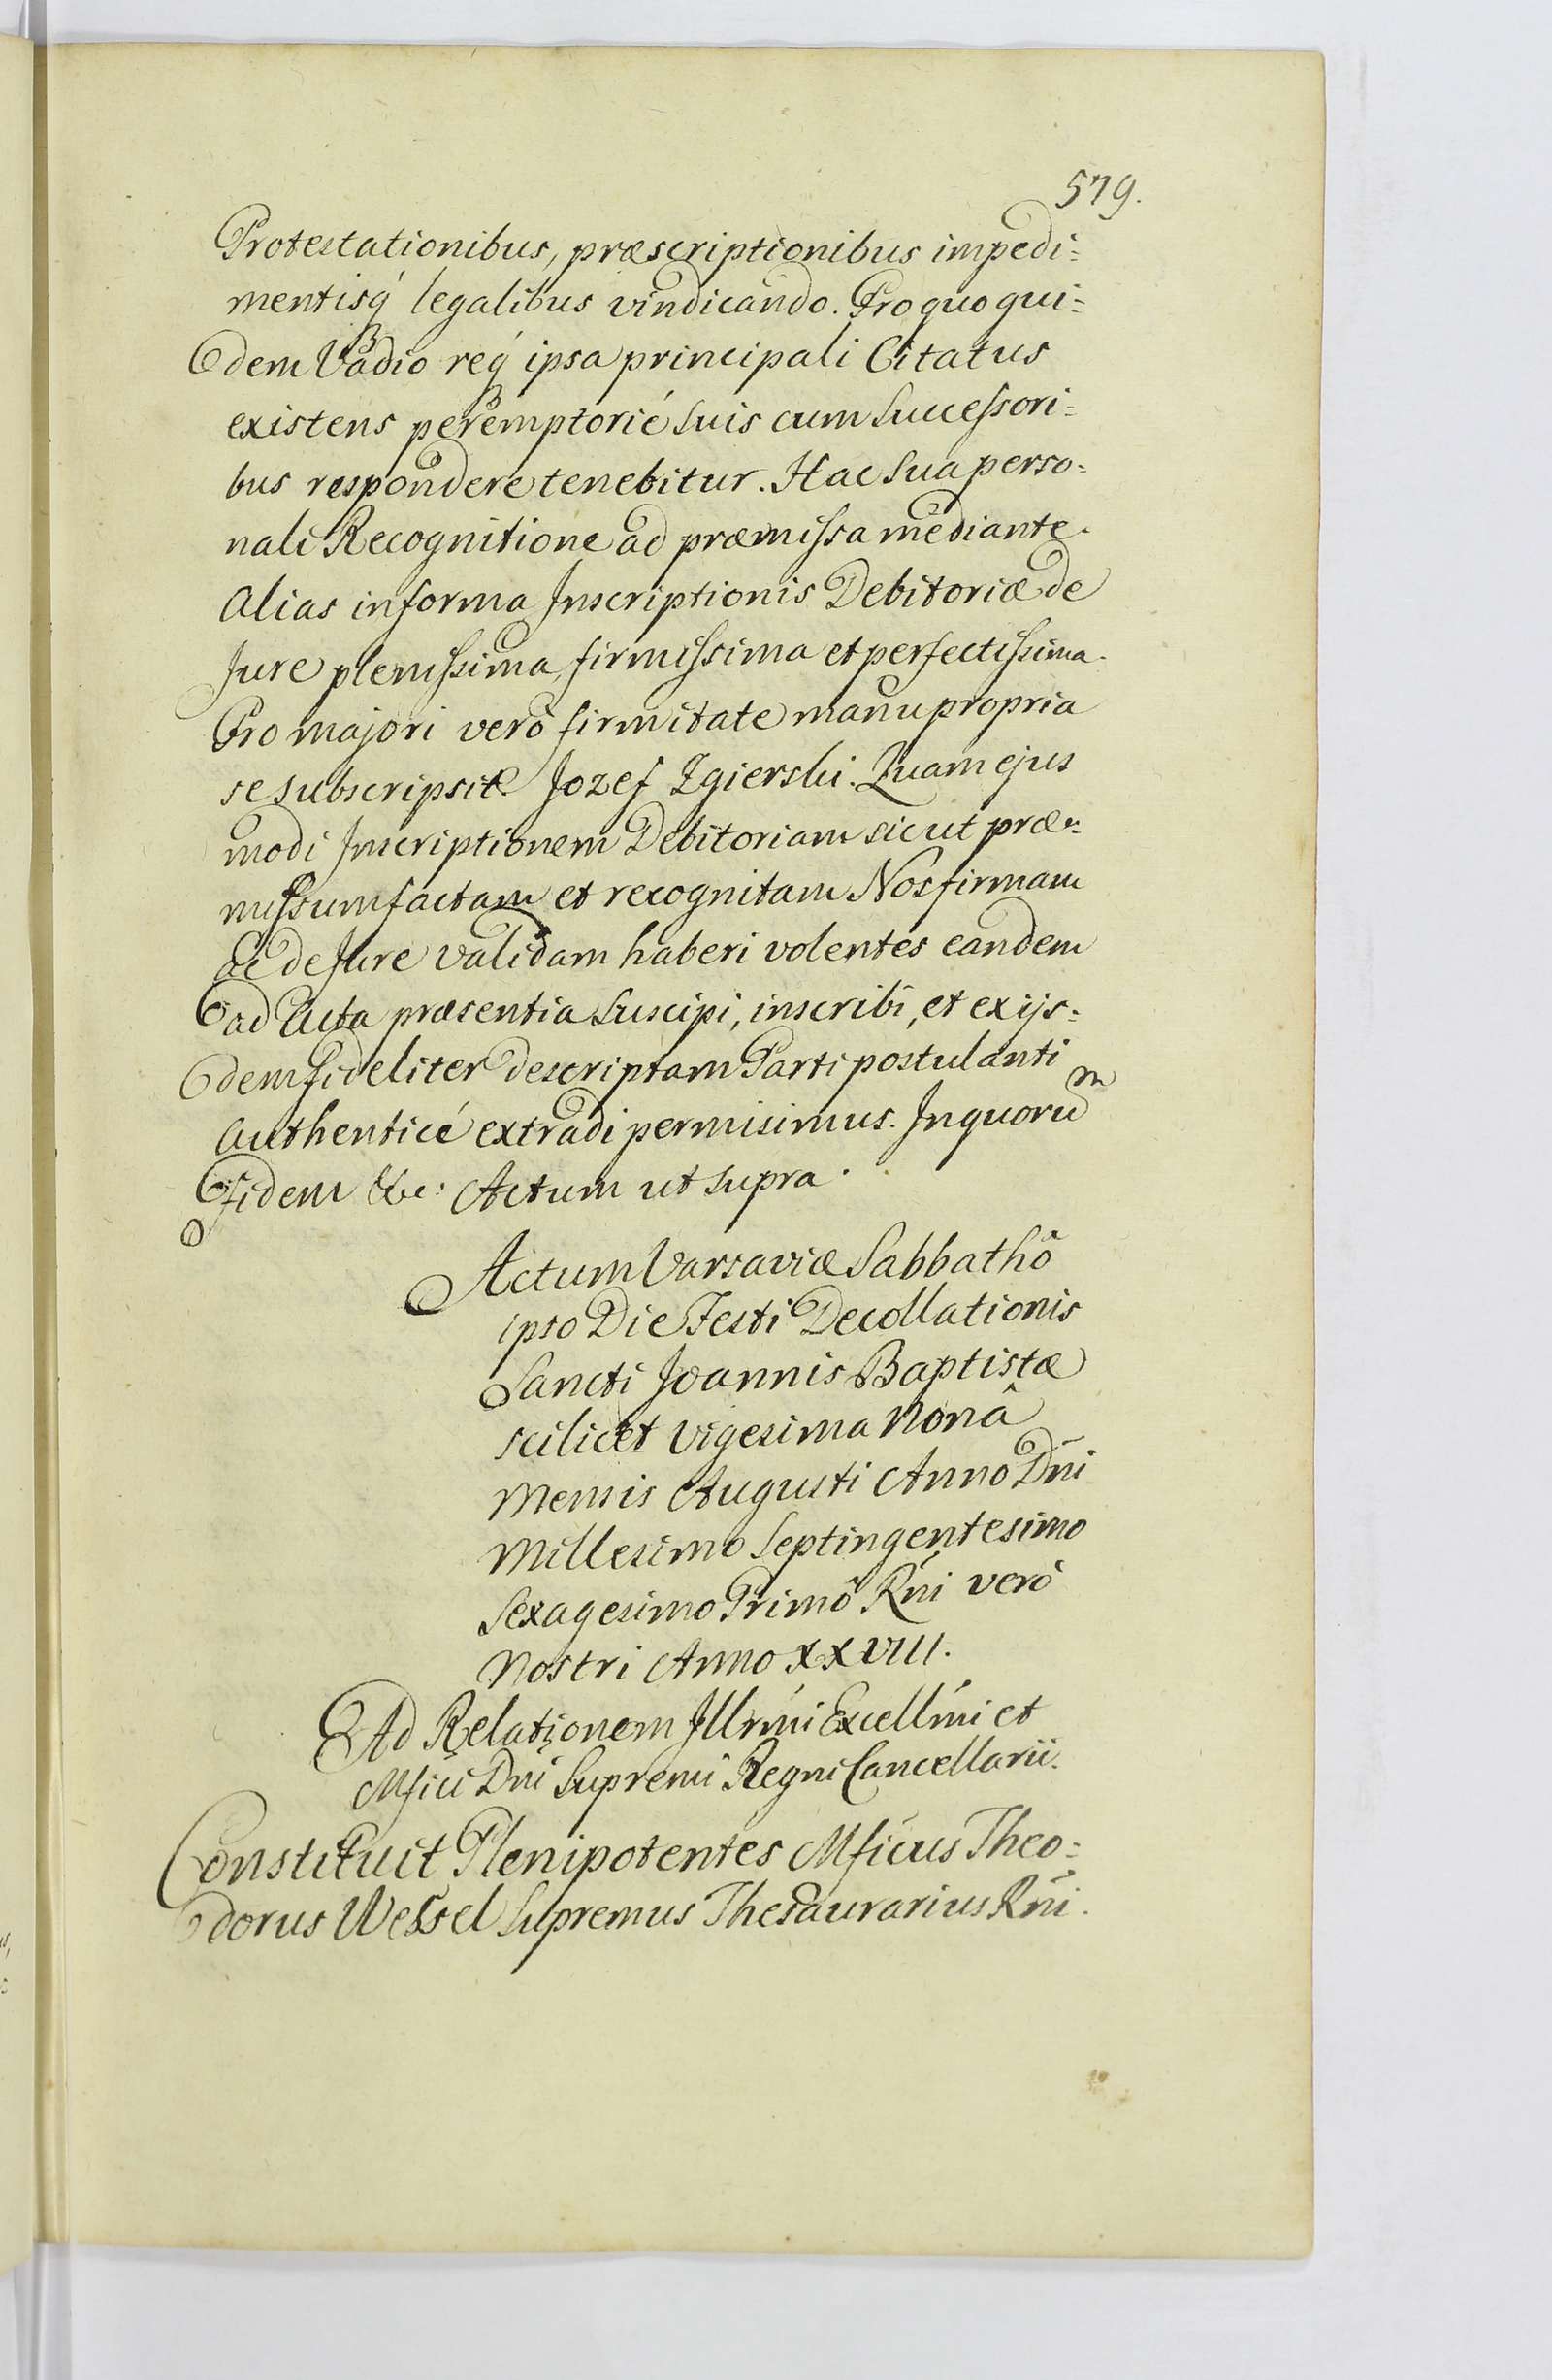 579.
Protestationibus, præscriptionibus impedi=
mentisq́ legalibus vindicando. Pro quo qui=
dem Vadio req́ ipsa principali Citatus
existens peremptorié suis cum successori=
bus respondere tenebitur. Hac sua perso=
nali Recognitione ad præmissa mediante.
Alias in forma Inscriptionis Debitoriæ de
Jure plenissima, firmissima et perfectissima.
Pro majori verò firmitate manu propria
se subscripsit. Jozef Zgierski. Quam ejus
modi Inscriptionem Debitoriam sicut præ=
missum factam et recognitam Nos firmam
ac de Jure validam haberi volentes eandem
ad Acta præsentia suscipi, inscribi, et ex ijs=
dem fideliter descriptam Parti postulanti
Authenticé extradi permisimus. In quorum
fidem &c: Actum ut supra.
Actum Varsaviæ Sabbathô
ipso Die Festi Decollationis
Sancti Joannis Baptistæ
scilicet vigesima Nonâ
Mensis Augusti Anno Dńi
Millesimo Septingentesimo
Sexagesimo Primô Rńi verò
Nostri Anno XXVIII.
Ad Relationem Illrmi Excellmi et
Mfici Dni Supremi Regni Cancellarii.
Constituit Plenipotentes Mficus Theo=
dorus Wessel Supremus Thesaurarius Rńi.